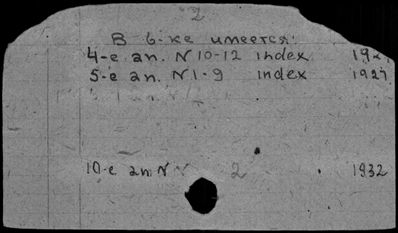 2
В б-ке имеется:
4-е an. N 10-12 index 192
5-е an. N 1-9 index 1927
10-е an. N N 2 1932